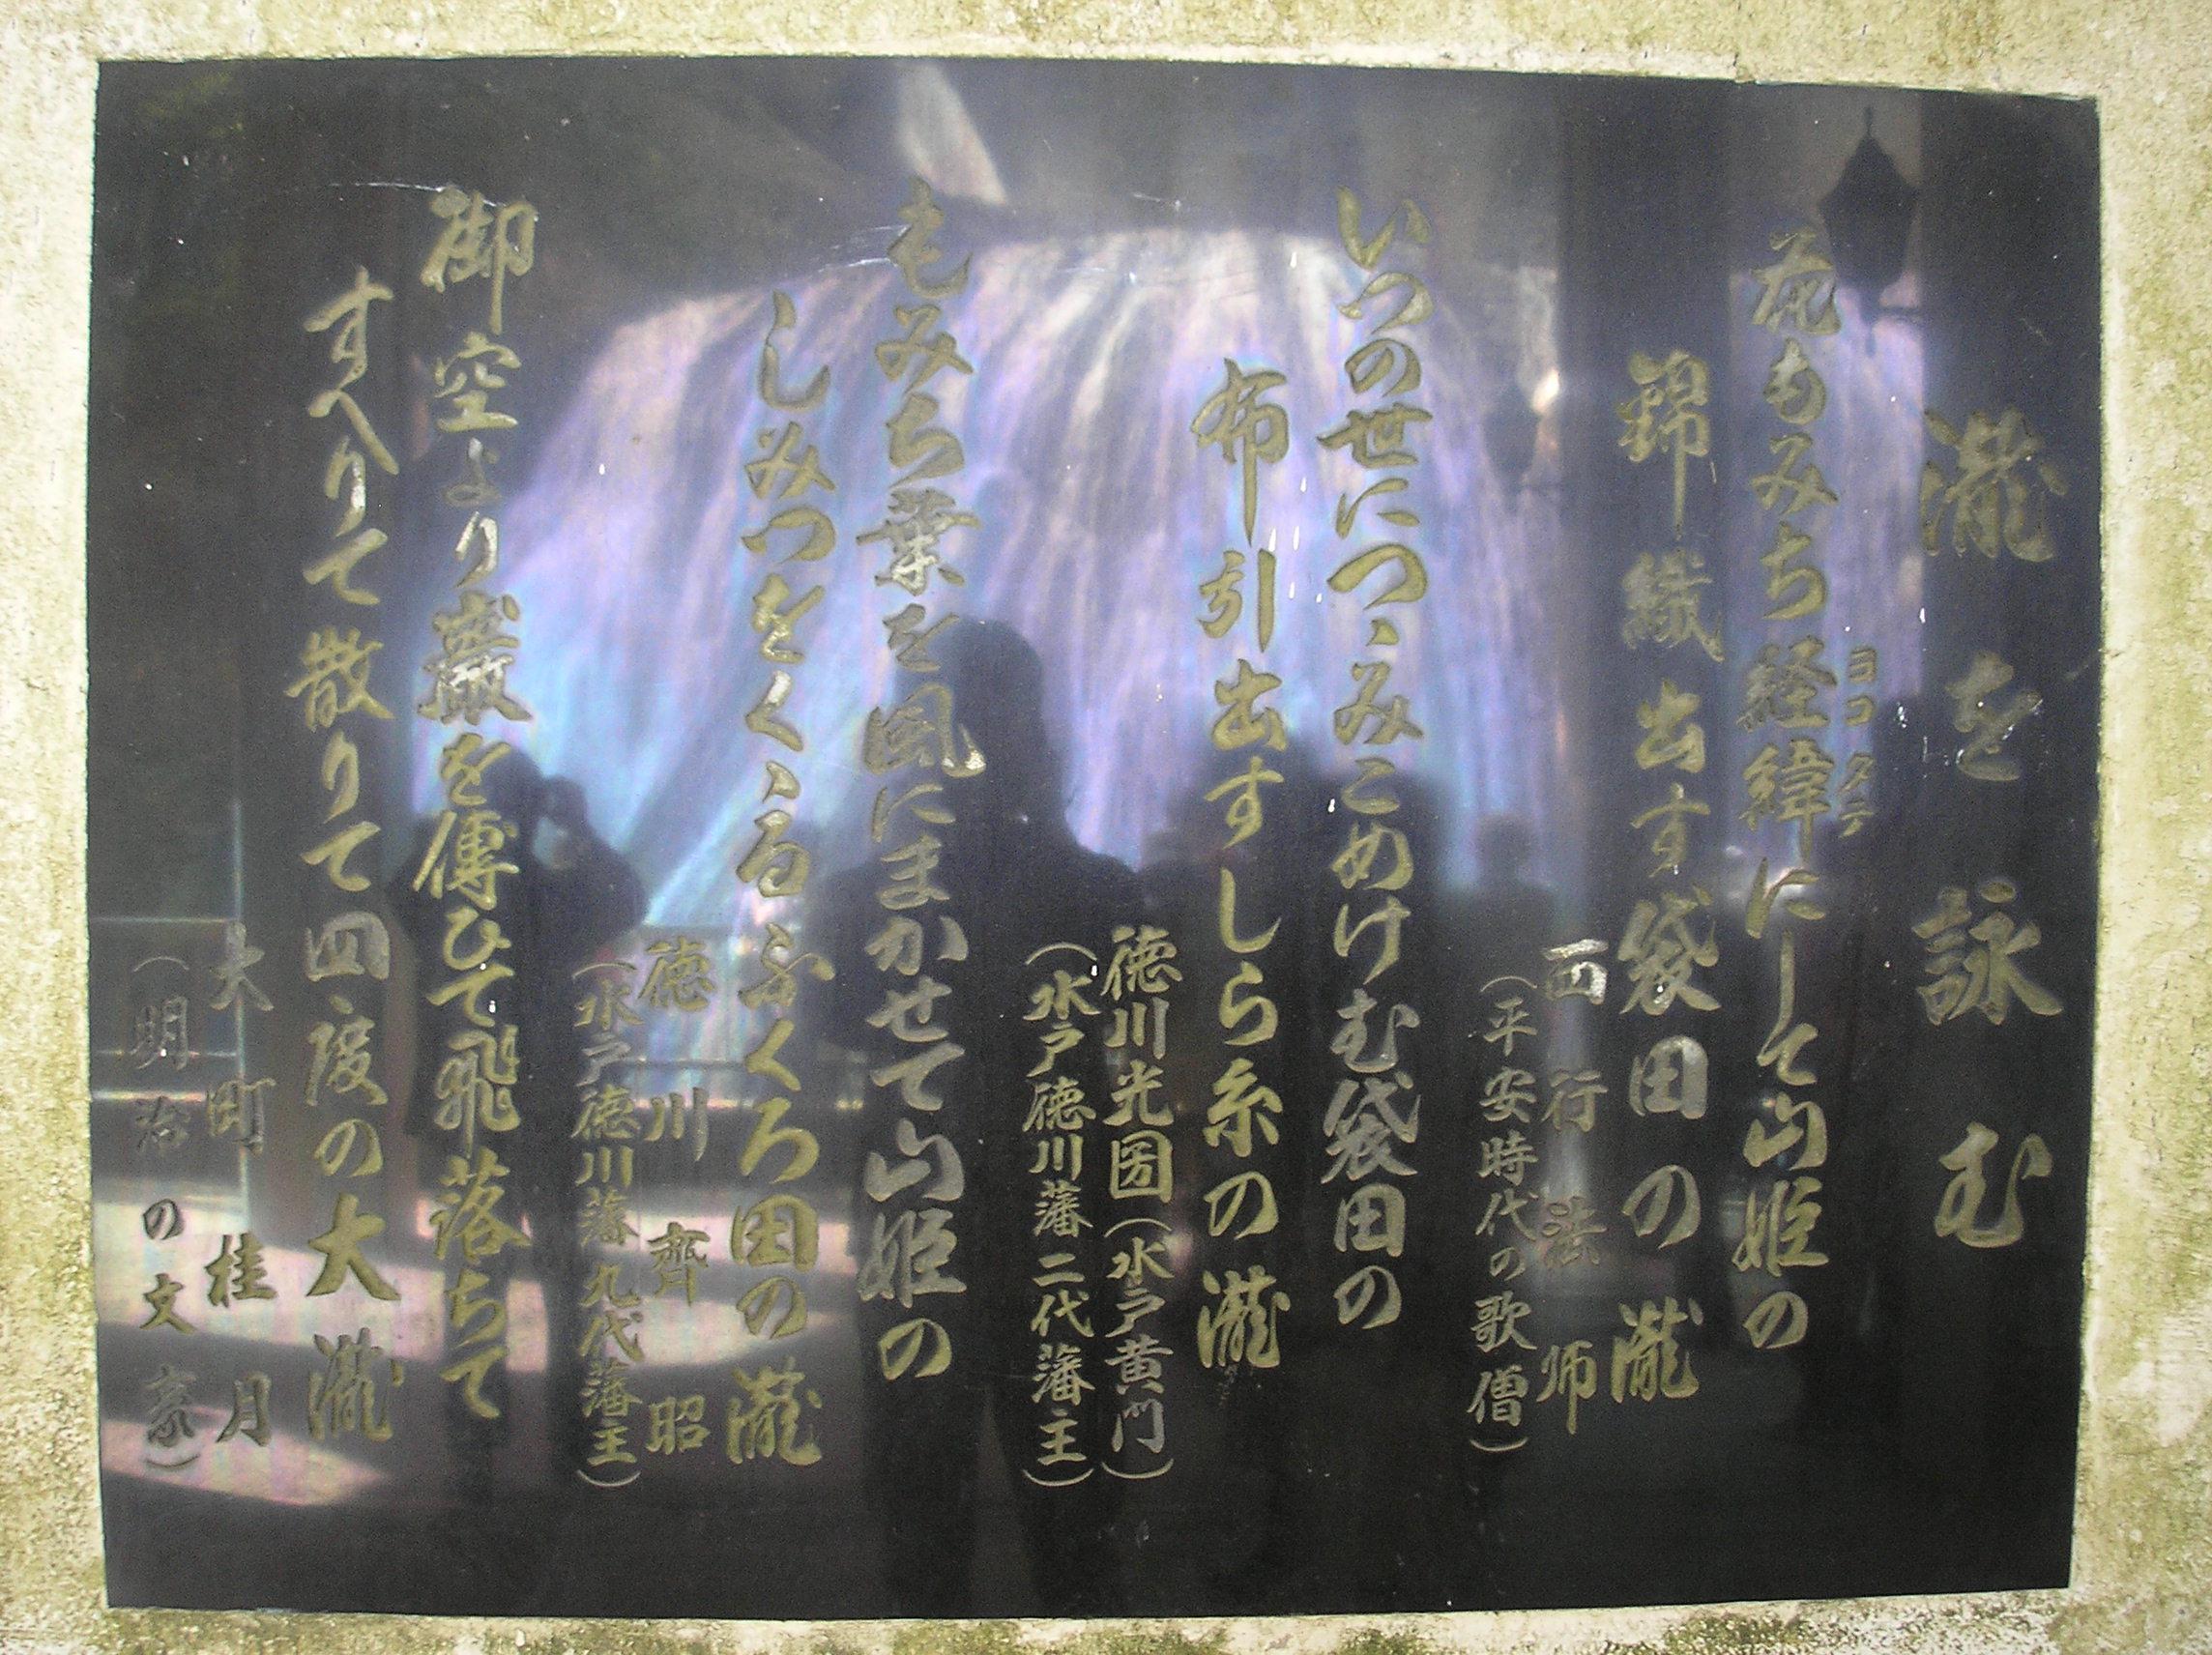 瀧を詠む
花もみち経緯にして山姫の
ヨコタテ
錦織出す袋田の瀧
西行法师
（平安時代の歌僧）
いつの世につゝみこめけむ袋田の
布引出すしら糸の瀧
徳川光圀（水戸黄門）
（水戸徳川藩二代藩主）
もみち葉を風にまかせて山姫の
しみつをくゝるふくろ田の瀧
徳川齊昭
（水戸徳川藩九代藩主）
御空より巌を傳ひて飛落ちて
すへりて散りて四度の大瀧
大町桂月
（明治の文豪）